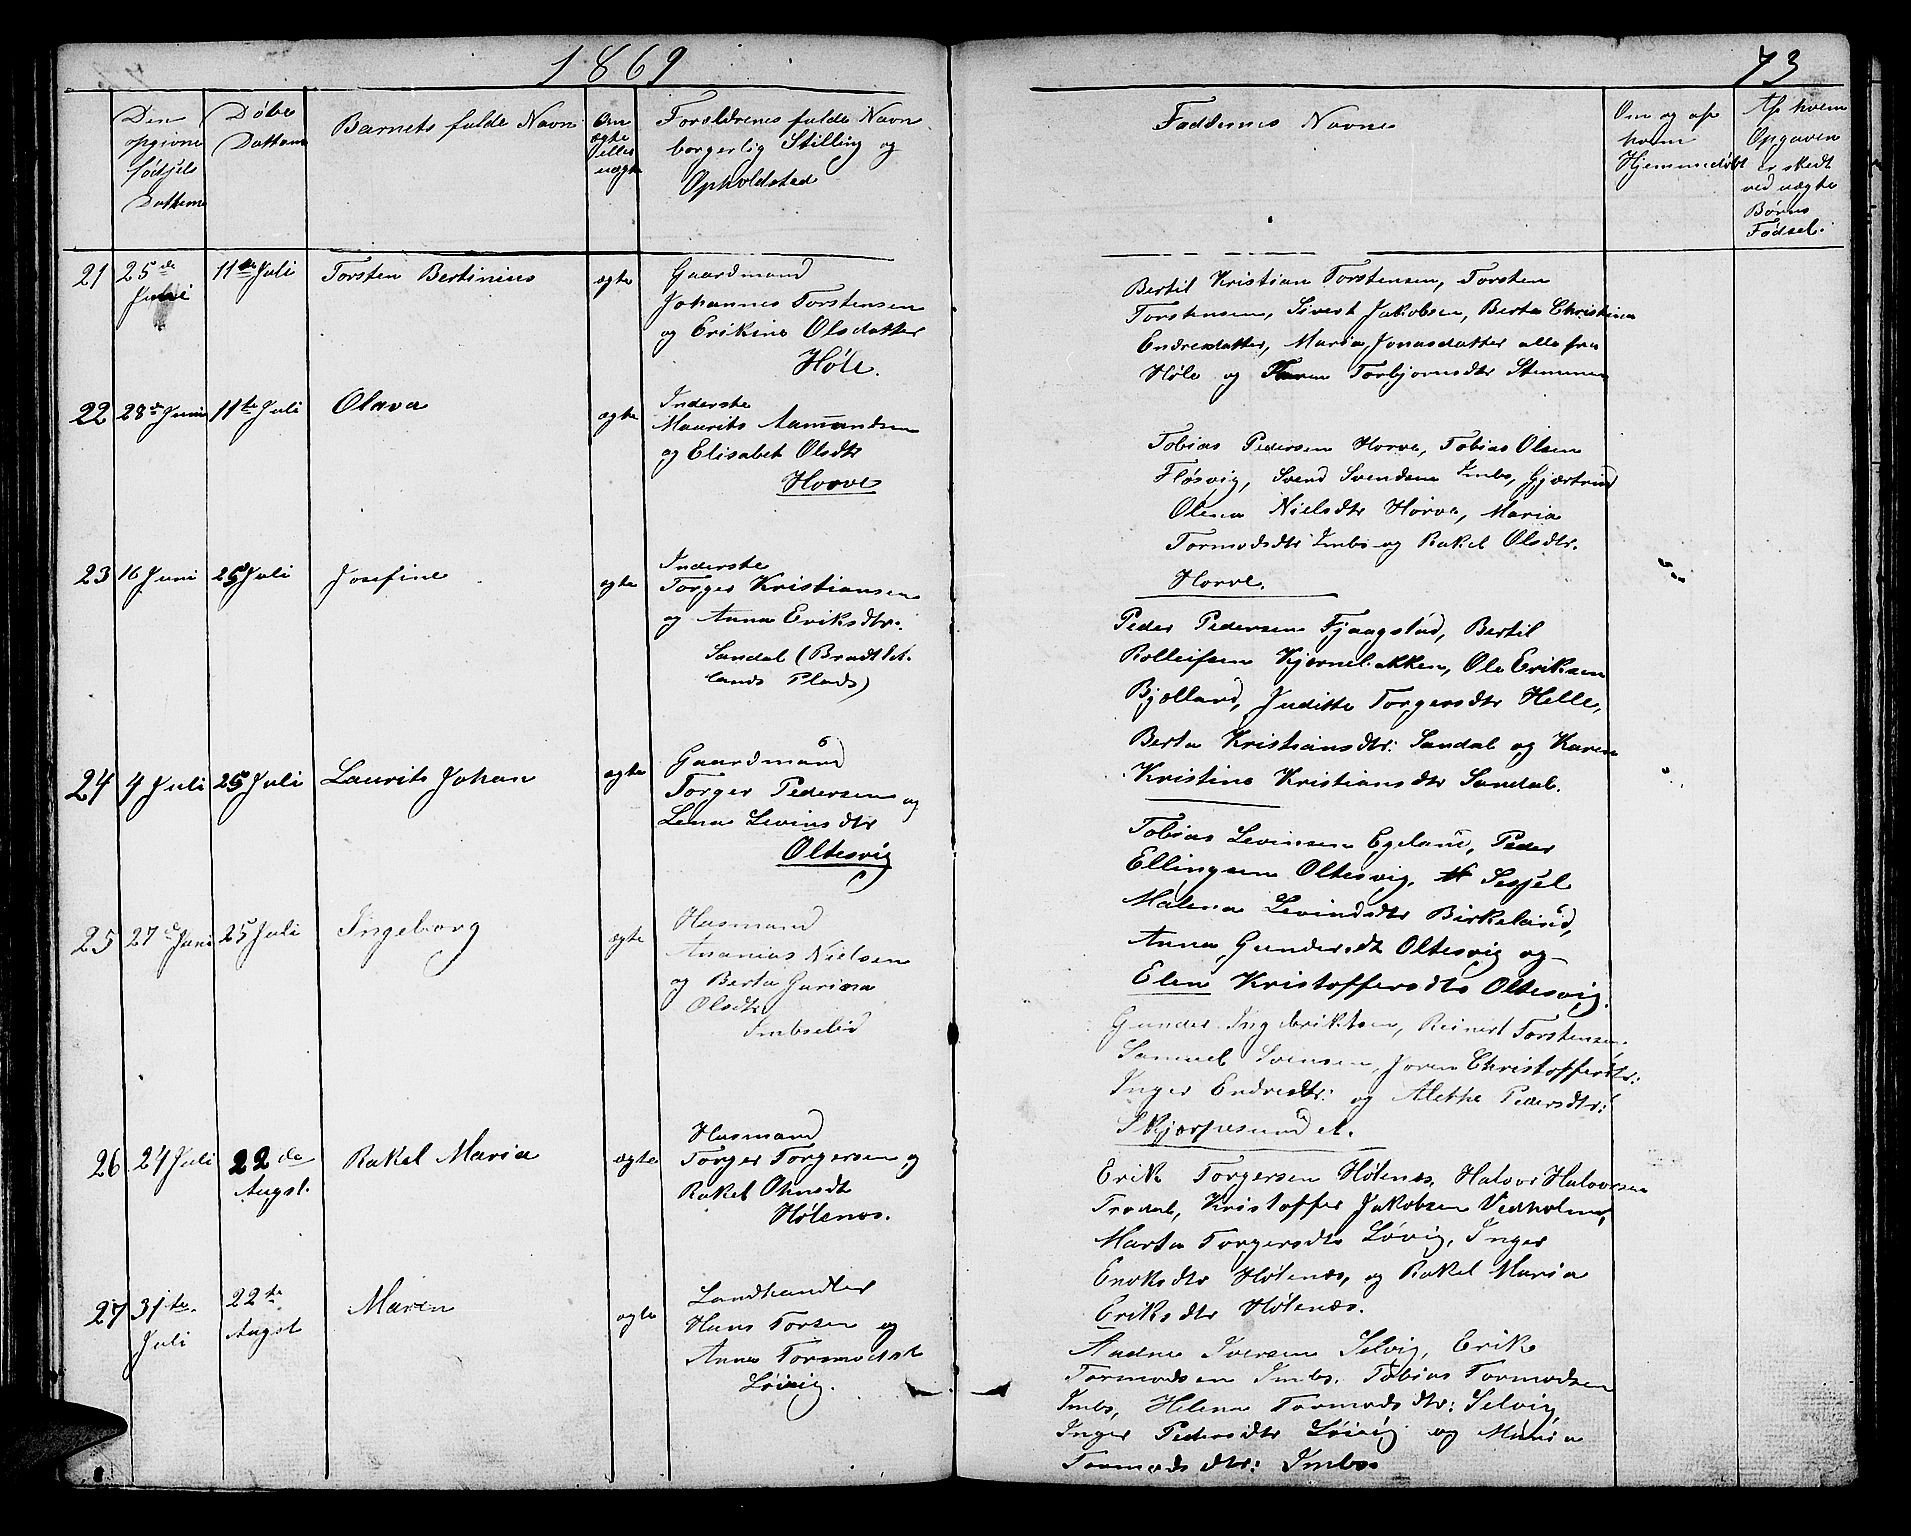 1869
73
Den opgivne fødsels Dattum
Døbe Dattum
Barnets fulde Navn
Om ægte eller uægte
Forældrenes fulde Navn
borgerlig Stilling og
Opholdsted
Faddernes Navne
Om og af
hvem
Hjemmedøbt
Af hvem
Opgaven
er skedt
ved uægte
Børns
Fødsel.
21 25de Juni 11te Juli Torsten Bertinius ægte
Gaardmand
Johannes Torstensen
og Erikine Olsdatter
Høle.
Bertil Kristian Torstensen, Torsten
Torstensen, Sivert Jakobsen, Berta Christina
Endresdatter, Maria Jonasdatter alle fra
Høle og Torbjørnsdtr Stemmen
22 28de Juni 11te Juli Olava ægte
Inderste
Maurits Aamundsen
og Elisabet Olsdtr
Horve
Tobias Pedersen Horve, Tobias Olsen
Fløsvig, Svend Svendsen Imbs, Gjærtrud
Olena Nielsdtr Horve, Maria
Tormodsdtr Imbs og Rakel Olsdtr.
Horve.
23 16 Juni 25 Juli Josefine ægte
Inderste
Torger Kristiansen
og Anna Eriksdtr.
Sandal (Bradtlet-
lands Plads)
Peder Pedersen Fjaagstad, Bertil
Rolleifsen Kjørnelikken, Ole Eriksen
Bjelland, Juditte Torgersdtr Helle,
Berta Kristiansdtr: Sandal og Karen
Kristine Kristiansdtr Sandal.
24 4 Juli 25 Juli Laurits Johan ægte
Gaardmand
Torger Pedersen og
Lena Levinsdtr
Oltesvig
Tobias Levinsen Egeland, Peder
Ellingsen Oltesvig, Sessel
Malena Levindsdtr Birkeland,
Anna Gundersdt Oltesvig og
Elen Kristoffersdtr Oltesvig.
25 27de Juni 25 Juli Ingeborg ægte
Husmand
Ananias Nielsen
og Berta Gurina
Olsdtr
Imbseeid
Gunder Ingebriktsen, Reinert Torstensen
Samuel Svensen, Joren Christoffersdtr:
Inger Endresdtr: og Alethe Pedersdtr:
Skjørpesundet.
26 24 Juli 22de Augst. Rakel Maria ægte
Husmand
Torger Torgersen og
Rakel Ohmsdt
Hølenæs.
Erik Torgersen Hølenæs, Halvor Halvorsen
Trodal, Kristoffer Jakobsen Vedholmen,
Marta Torgersdtr Løvig, Inger
Eriksdtr Hølenæs, og Rakel Maria
Eriksdtr Hølenæs.
27 31te Juli 22te Augst Maren ægte
Landhandler
Hans Torsen og
Anne Tormodsdt
Løivig.
Audne Iversen Selvig, Erik
Tormodsen Imbs. Tobias Tormodsen
Imbs, Helena Tormodsdtr: Selvig,
Inger Pedersdtr Løivig og Maria
Tormodsdtr: Imbs.